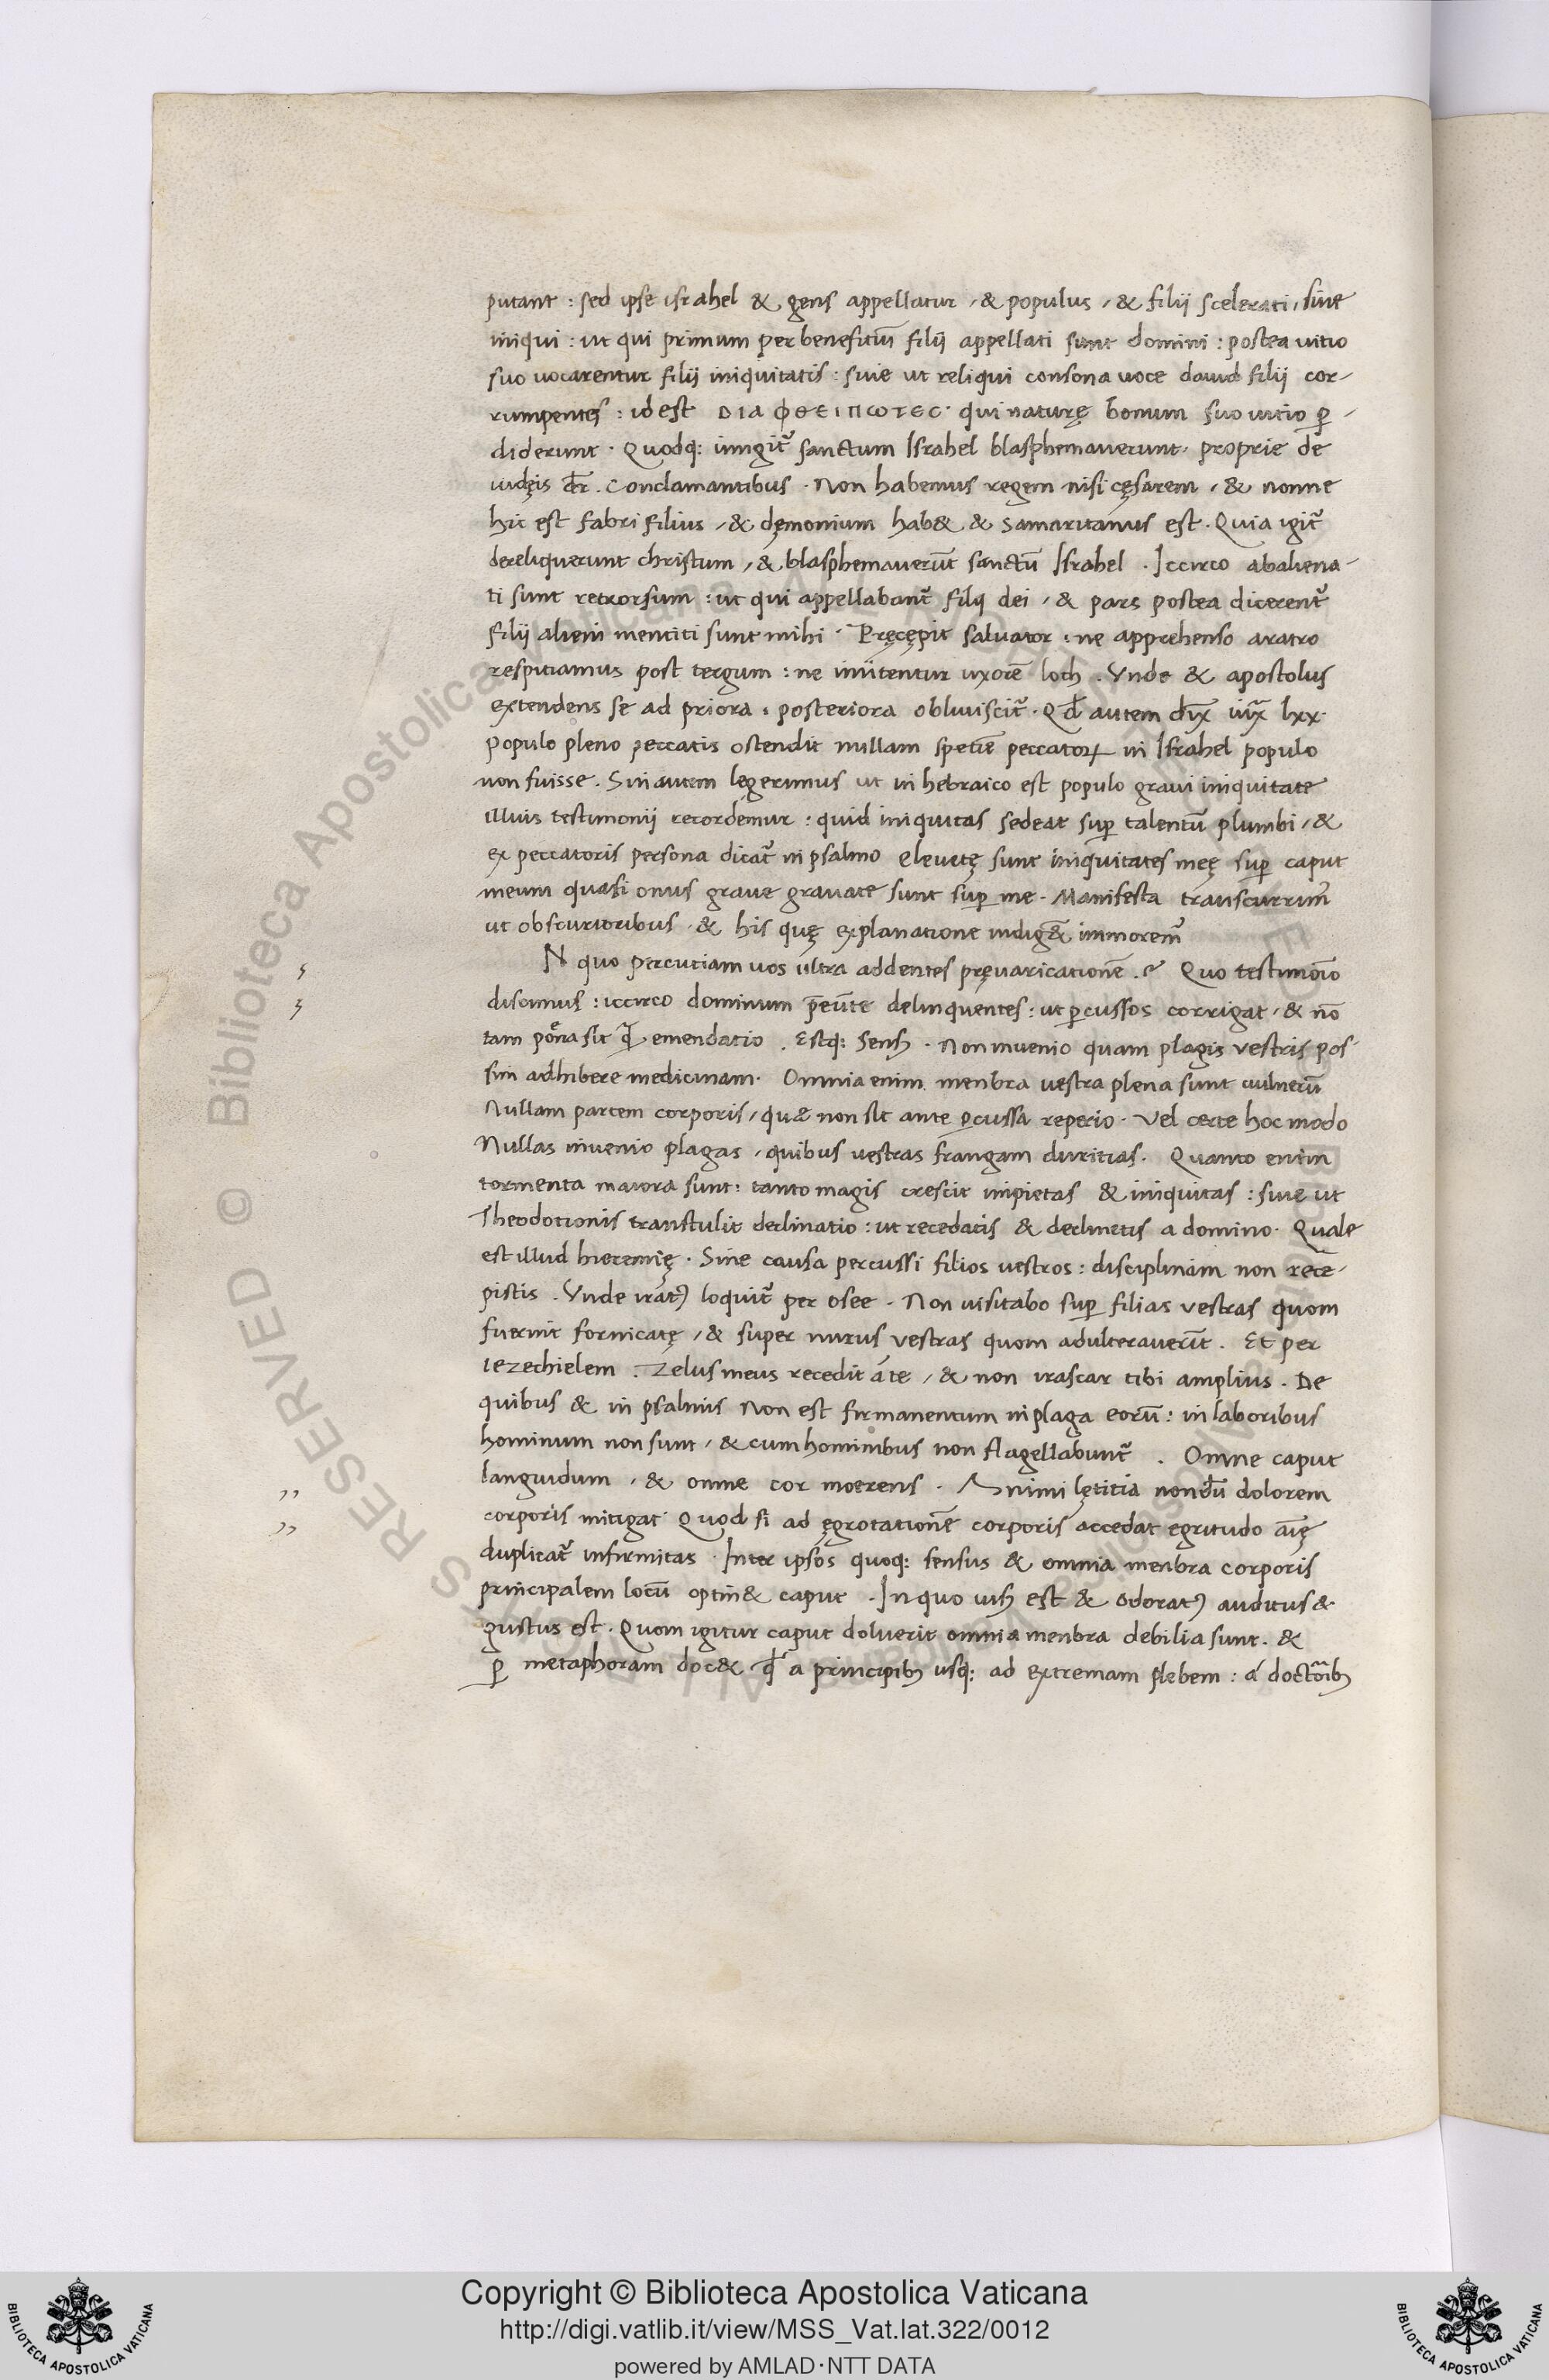 putant : sed ipse israhel & gens appellatur / & populus / & filij scelerati / sive
iniqui : ut qui primum per benefitiũ filij appellati sunt domini : postea vitio
suo vocarentur filij iniquitatis : sive ut reliqui consona voce david filij cor-
rumpentes : id est ΔΙΑΦΘΕΙΠΩΤΕC · qui naturę bonum suo vitio ꝑ-
diderunt · Quodq; iungit᷑ sanctum Israhel blasphemaverunt · proprie de
iudęis dr̄ . Conclamantibus . Non habemus regem nisi cęsarem / & nonne
hic est fabri filius / & dęmonium hab& & Samaritanus est . Quia igit᷑
dereliquerunt christum / & blasphemaverũt sanctũ Israhel . Iccirco abaliena-
ti sunt retrorsum : ut qui appellabant᷑ filij dei / & pars postea dicerent᷑
filij alieni mentiti sunt mihi · Pręcępit salvator : ne apprehenso aratro
respitiamus post tergum : ne imitentur uxorẽ loth . Unde & apostolus
extendens se ad priora : posteriora obliviscit᷑ . Qđ autem dix̄ iux̄ lxx ·
Populo pleno peccatis ostendit nullam spetiẽ peccatoꝝ in Israhel populo
non fuisse . Sin autem legerimus ut in hebraico est populo gravi iniquitate
illius testimonij recordemur : quid iniquitas sedeat suꝑ talentũ plumbi / &
ex peccatoris persona dicat᷑ in psalmo elevatę sunt iniquitates meę suꝑ caput
meum quasi onus grave gravate sunt suꝑ me . Manifesta transcurrim᷑
ut obscurioribus · & his quę explanatione indig& immorem᷑
N quo percutiam vos ultra addentes pręvaricationẽ . Quo testimoĩo
discimus : iccirco dominum delinquentes : ut ꝑcussos corrigat / & nõ
tam pẽna sit q̃ emendatio . Estq; Sensꝰ . Non invenio quam plagis vestris pos-
sim adhibere medicinam . Omnia enim menbra vestra plena sunt vulnerũ
Nullam partem corporis / quæ non sit ante ꝑcussa reperio . Vel certe hoc modo
Nullas invenio plagas / quibus vestras frangam duritias . Quanto enim
tormenta maiora sunt : tanto magis crescit inpietas & iniquitas : sive ut
Theodotionis transtulit declinatio : ut recedatis & declinetis a domino . Quale
est illud hieremię . Sine causa percussi filios vestros : disciplinam non rece-
pistis . Unde iratꝰ loquit᷑ per osee . Non visitabo suꝑ filias vestras quom
fuerint fornicatę / & super nurus vestras quom adulteraverĩt . Et per
iezechielem . Zelus meus recedit á te / & non irascar tibi amplius . De
quibus & in psalmis Non est firmamentum in plaga eorũ : in laboribus
hominum non sunt / & cum hominibus non flagellabunt᷑ . Omne caput
languidum / & omne cor moerens . Animi lętitia nondũ dolorem
corporis mitigat Quod si ad ęgrotationẽ corporis accedat egritudo aĩę
duplicat᷑ infirmitas . Inter ipsos quoq; sensus & omnia menbra corporis
principalem locũ optin& caput . In quo visꝰ est & odoratꝰ auditus &
gustus est . Quom igitur caput doluerit omnia menbra debilia sunt . &
ꝑ metaphoram doc& qđ a principibꝰ usq; ad extremam plebem : á doctoĩbꝰ
Copyright © Biblioteca Apostolica Vaticana
http://digi.vatlib.it/view/MSS_Vat.lat.322/0012
powered by AMLAD·NTT DATA